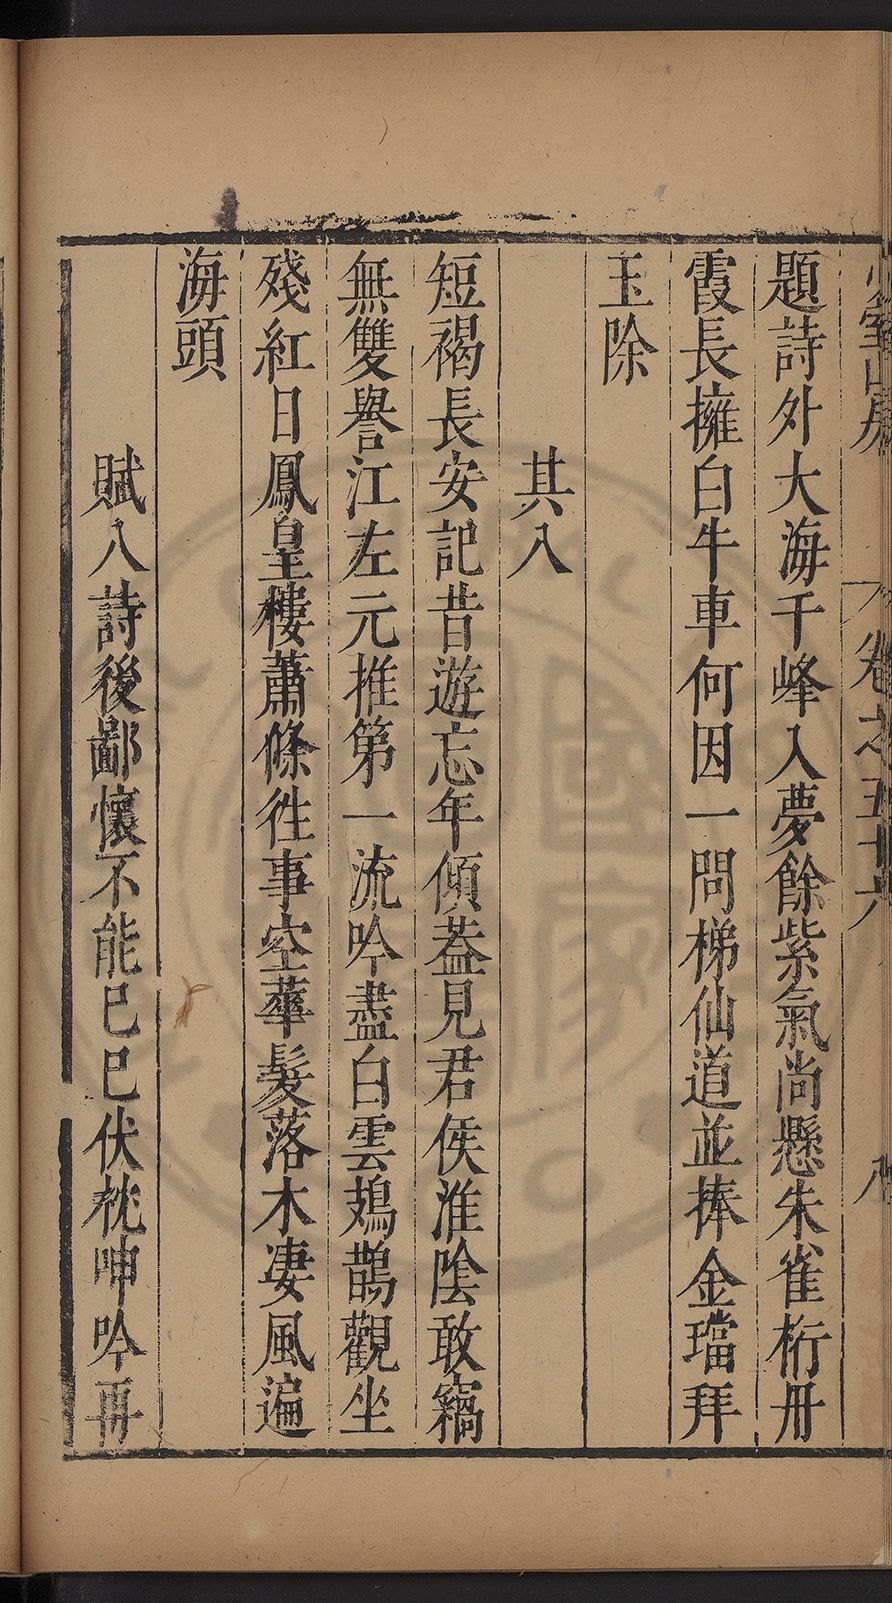 卷之五十六
八
題詩外大海千峰入夢餘紫氣尚懸朱雀桁冊
霞長擁白牛車何因一問梯仙道並捧金璫拜
玉除
其八
短褐長安記昔遊忘年傾葢見君侯淮陰敢竊
無雙譽江左元推第一流吟盡白雲鳷鵲觀坐
殘紅日鳳皇樓蕭條徃事空華髮落木凄風遍
海頭
賦八詩後鄙懷不能已已伏枕呻吟再